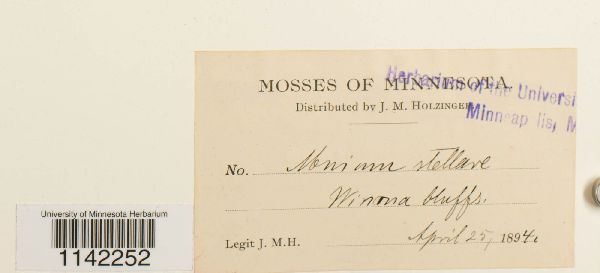 MOSSES OF MINNESOTA.
Herbarium of the Universi
Distributed by J. M. HOLZINGER.
Minneap lis, M
No. Mnium stellare
Winona bluffs.
Legit J. M. H. April 25, 1894.
University of Minnesota Herbarium
1142252